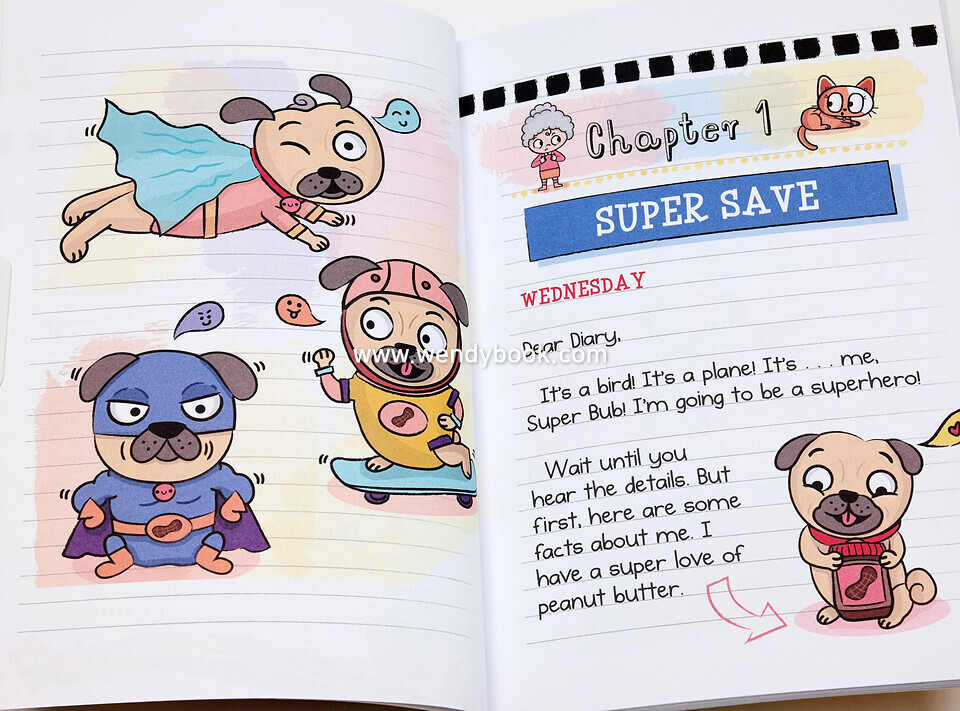 Chapter 1
SUPER SAVE
WEDNESDAY
Dear Diary,
www.wendybook.com
It's a bird! It's a plane! It's . . . me,
Super Bub! I'm going to be a superhero!
Wait until you
hear the details. But
first, here are some
facts about me. I
have a super love of
peanut butter.